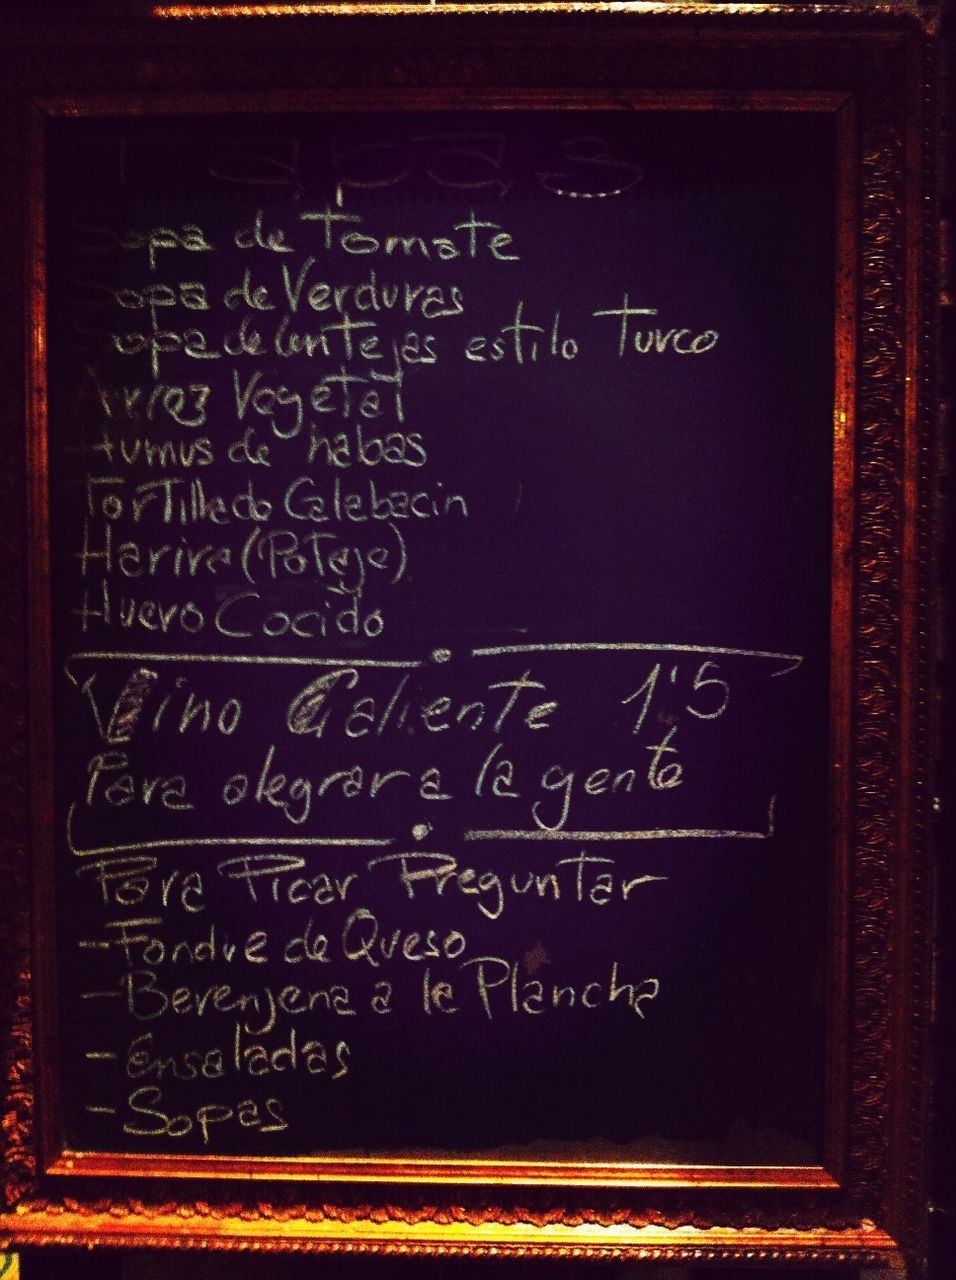 Tapas
Sopa de Tomate
Sopa de Verduras
Sopa de lentejas estilo Turco
Arroz Vegetal
Humus de habas
Tortilla do Calabacin
Harira (Potaje)
Huevo Cocido
Vino Caliente 1'5
Para alegrar a la gente
Para Picar Preguntar
-Fondue de Queso
-Berenjena a la Plancha
-Ensaladas
-Sopas